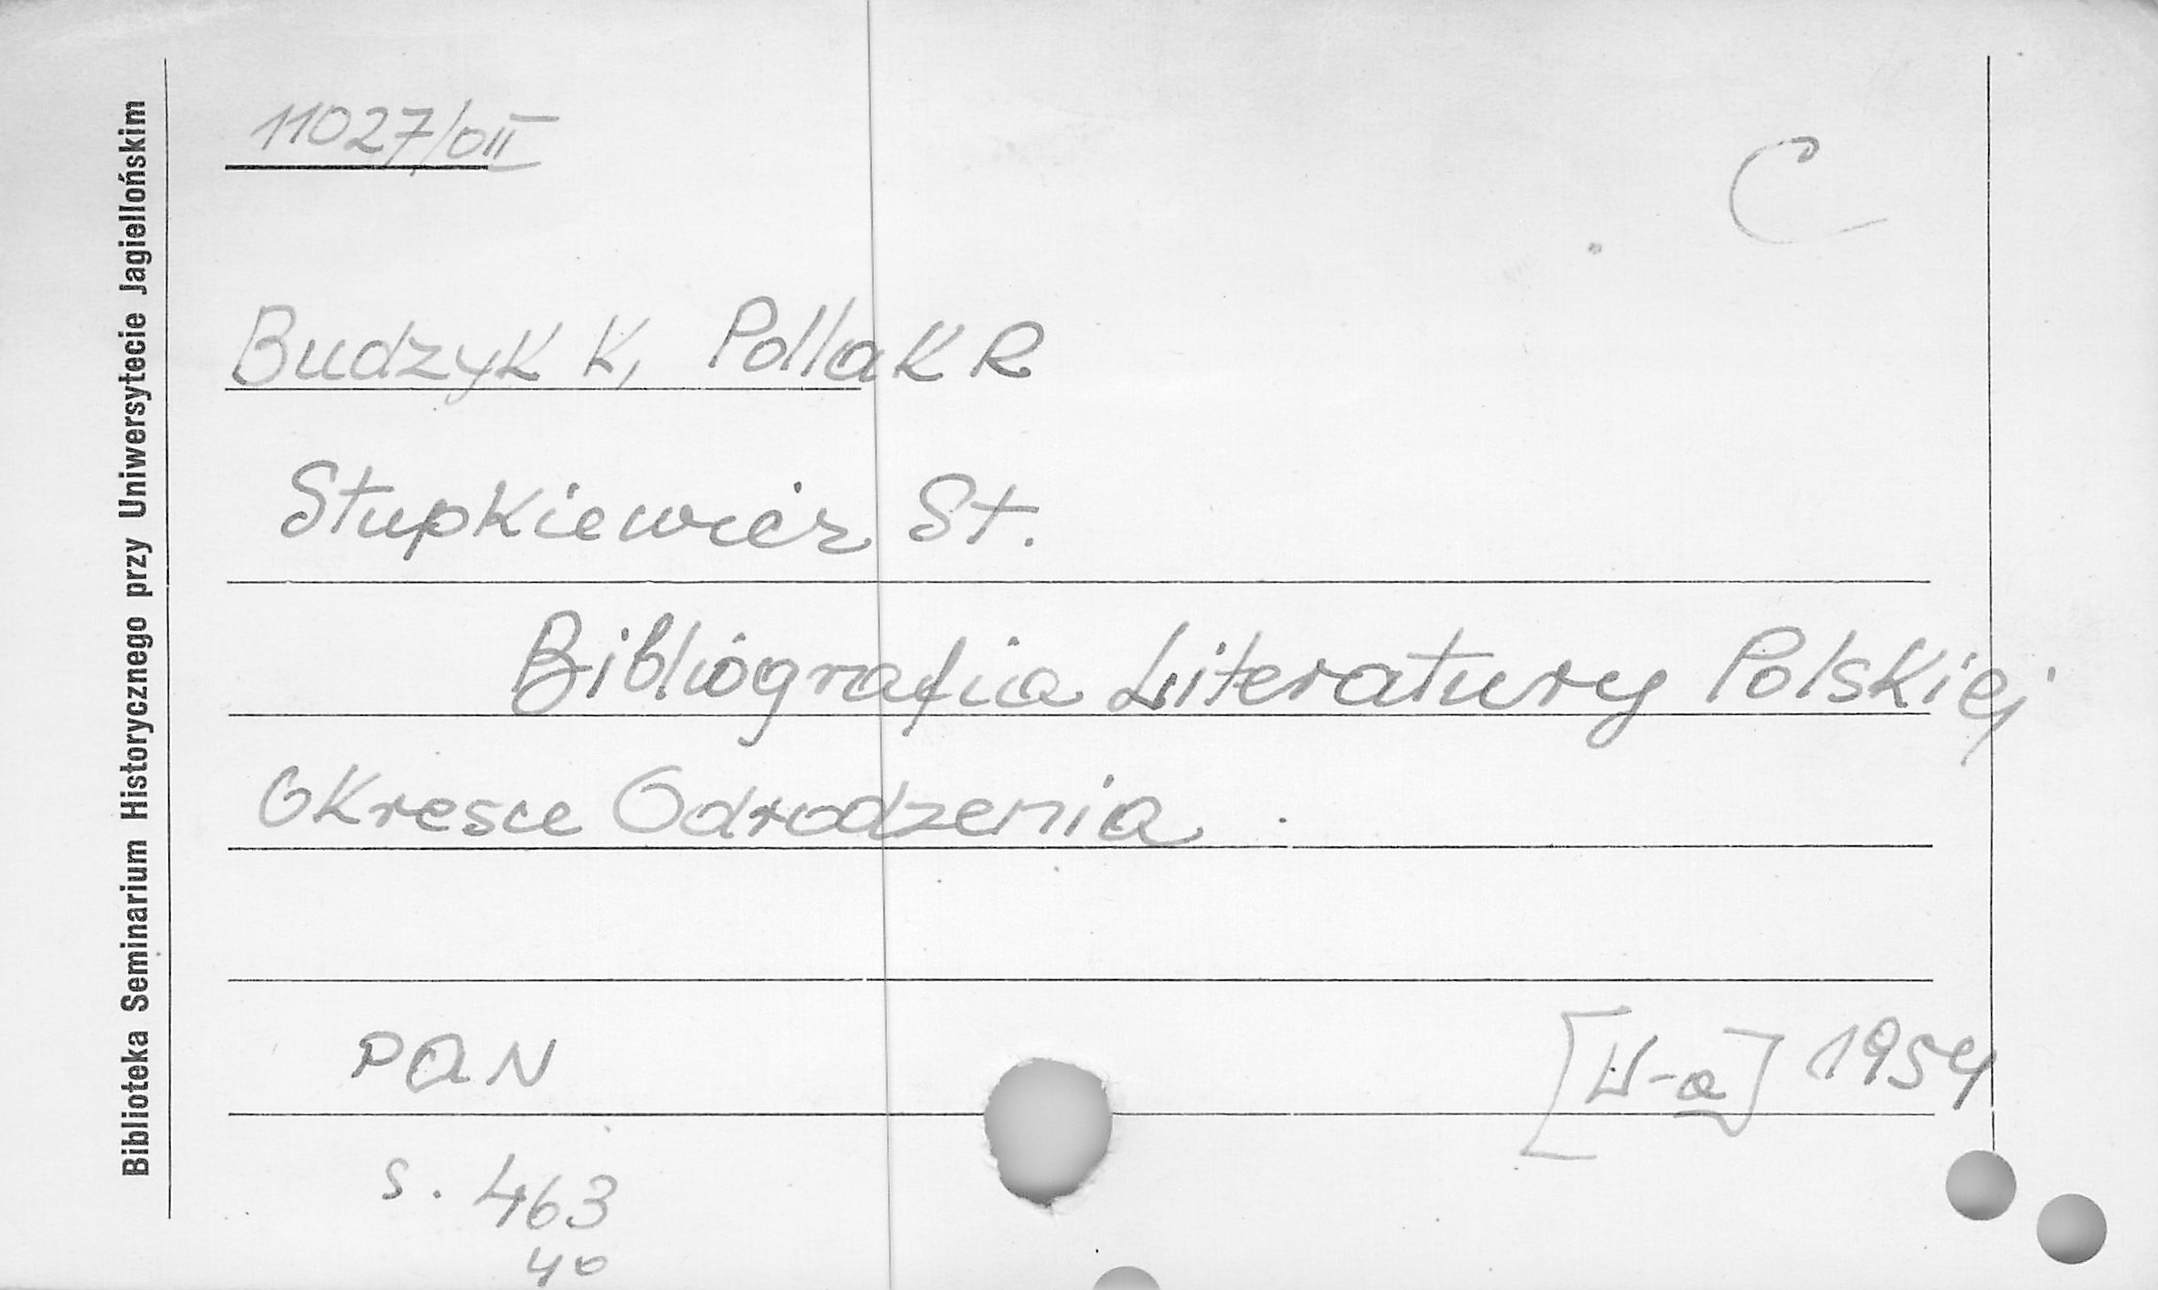 11027/OII
C
Budzyk K, Pollak R
Stupkiewicz St.
Bibliografia Literatury Polskiej
Okresce Odrodzenia
PAN
[W-a] 1954
s. 463
40
Biblioteka Seminarium Historycznego przy Uniwersytecie Jagiellońskim